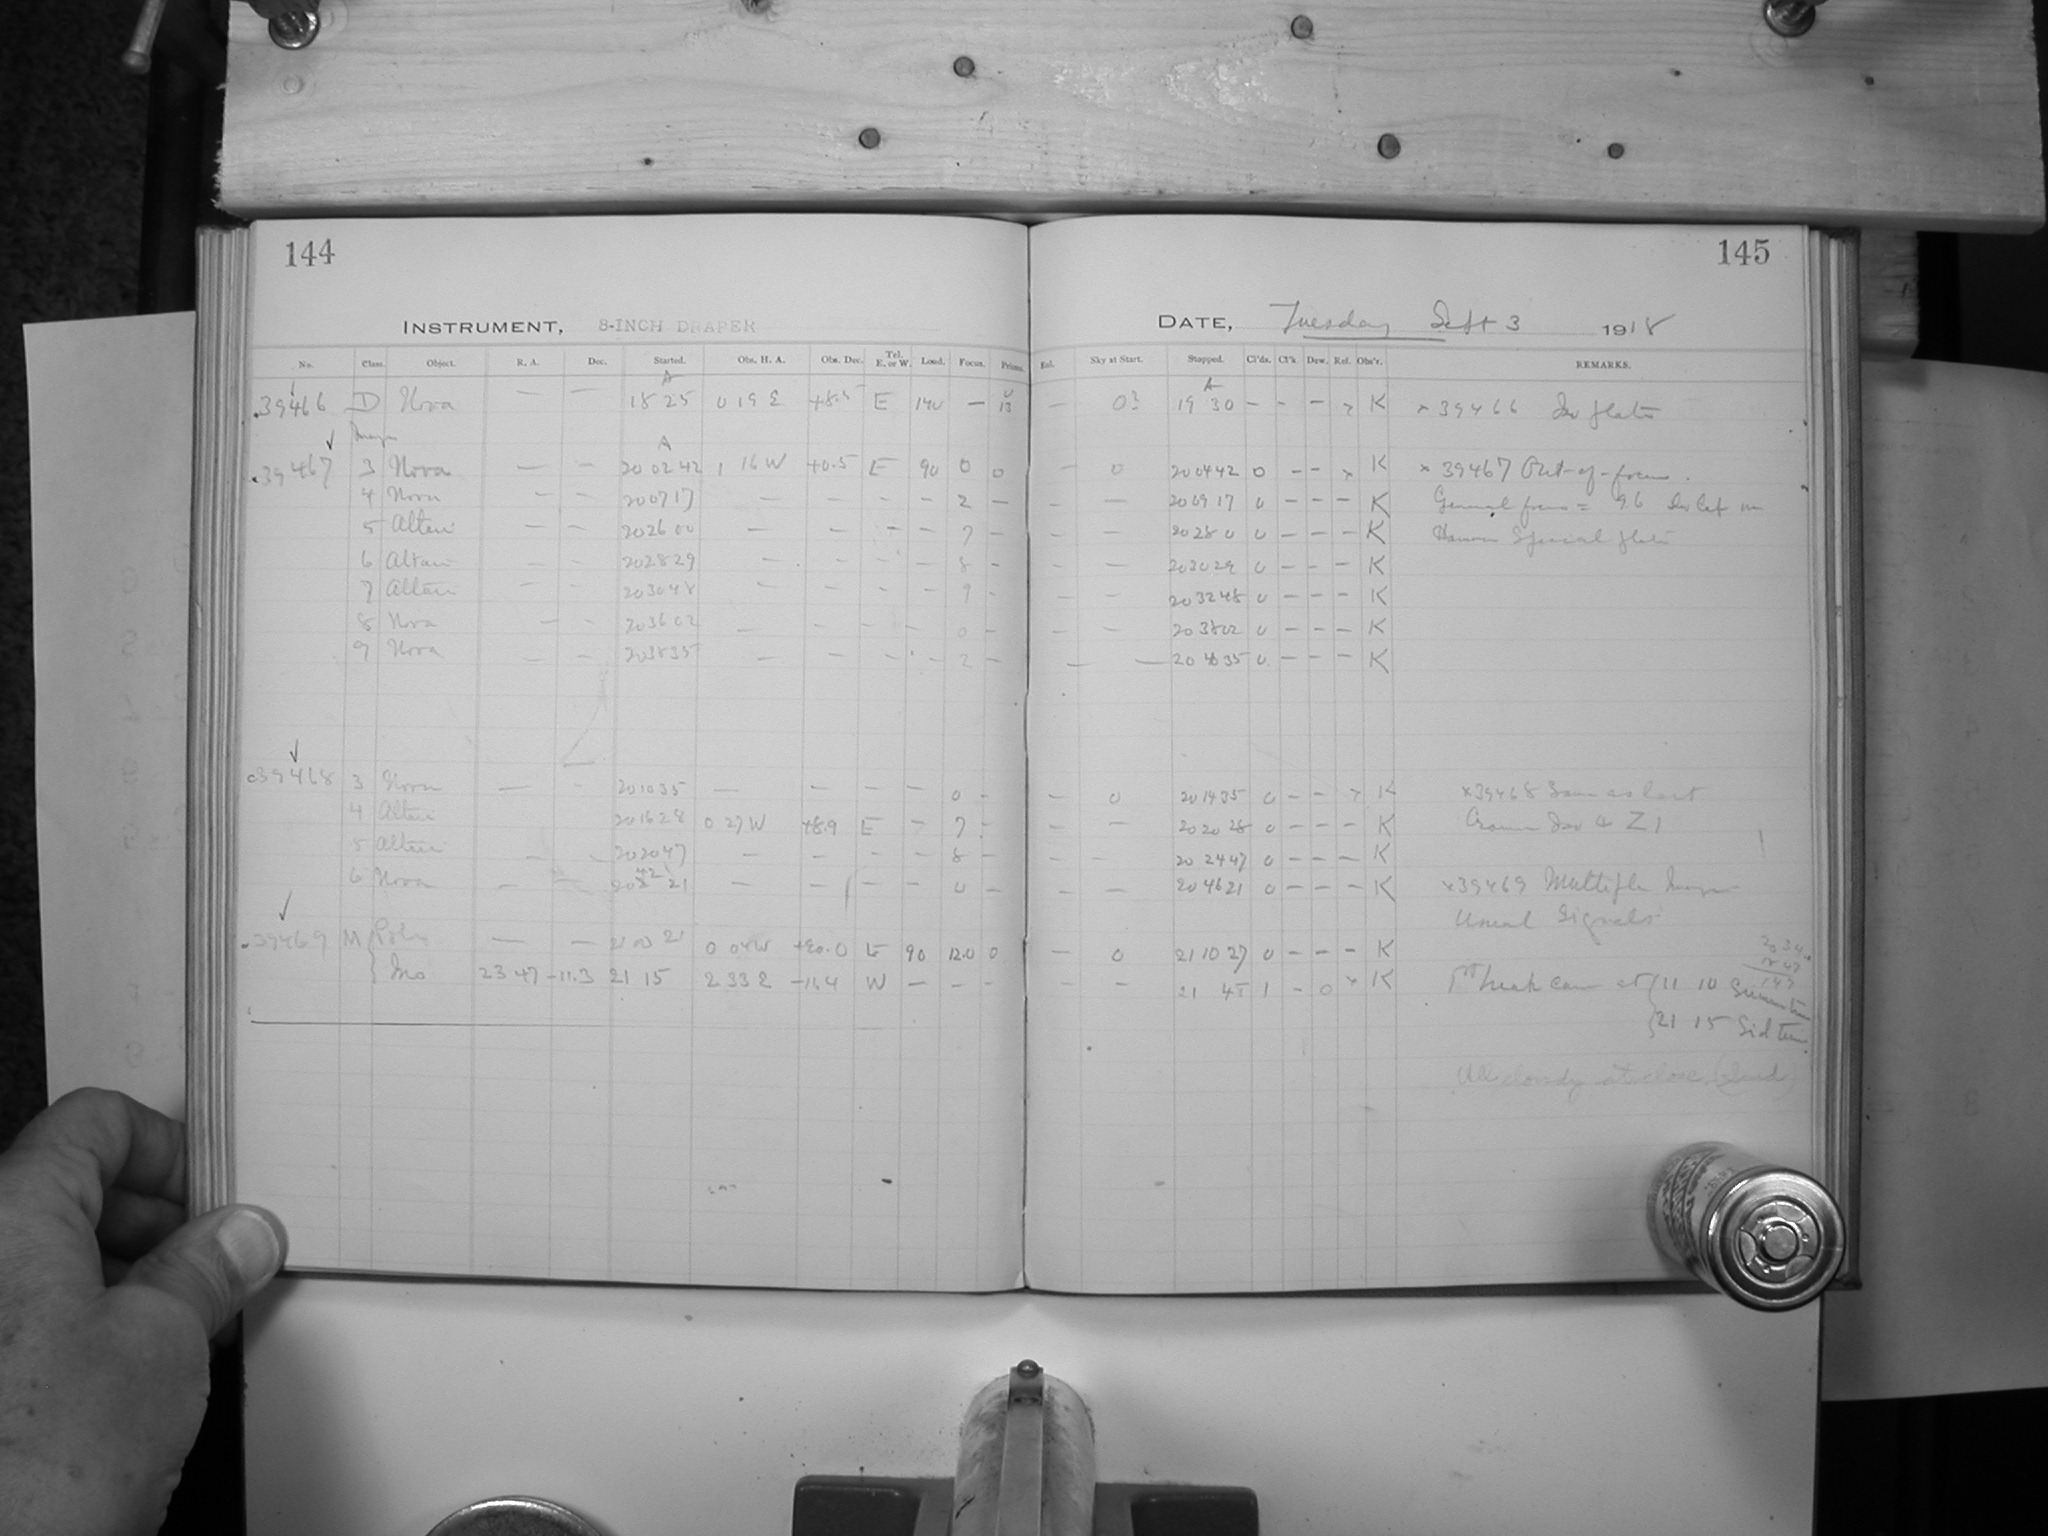 144
145
INSTRUMENT, 8-INCH DRAPER
DATE, Tuesday Sept 3 1918
No. Class. Object. R. A. Dec. Started. Obs. H. A. Obs. Dec. Tel. E. or W. Load. Focus. Prisms. Sky at Start. Stopped. Cl'ds. Cl'k. Dew. Ref. Obs'r. REMARKS.
A A
39466 D Nova — — 18 25 0 19 E E 140 — 13 — 0? 19 30 – – – x K x 39466
A
39467 3 Nova — — 20 02 42 1 16 W +0.5 E 90 0 0 — 0 20 04 42 0 – – x K x 39467 Out-of-focus.
4 Nova — — 20 07 17 — — – – 2 — — — 20 09 17 0 – – – K General focus = 9.6
5 Altair — — 20 26 00 — — – – 7 — — — 20 28 0 0 – – – K Special plate
6 Altair — — 20 28 29 — — – – 8 – — — 20 30 29 0 – – – K
7 Altair — — 20 30 48 — — – – 9 – — — 20 32 48 0 – – – K
8 Nova — — 20 36 02 — — – – 0 – — — 20 38 02 0 – – – K
9 Nova — — 20 38 35 — — – – 2 – — — 20 40 35 0 – – – K
39468 3 Nova — – 20 10 35 — — – – 0 – — 0 20 14 35 0 – – x K x 39468 Same as last
4 Altair 20 16 28 0 27 W +8.9 E – 7 – — — 20 20 28 0 – – – K
5 Altair – – 20 20 47 — – – – 8 – — – 20 24 47 0 – – – K
6 Nova – – 20 42 21 — – – – 0 – – — 20 46 21 0 – – – K x 39469 Multiple
Usual Signals
39469 M — — 21 00 21 0 04 W E 90 12.0 0 — 0 21 10 27 0 – – – K
23 47 –11.3 21 15 2 33 E –11.4 W – – – – — 21 45 1 – 0 x K at 11 10
21 15 Sid time
All cloudy at close